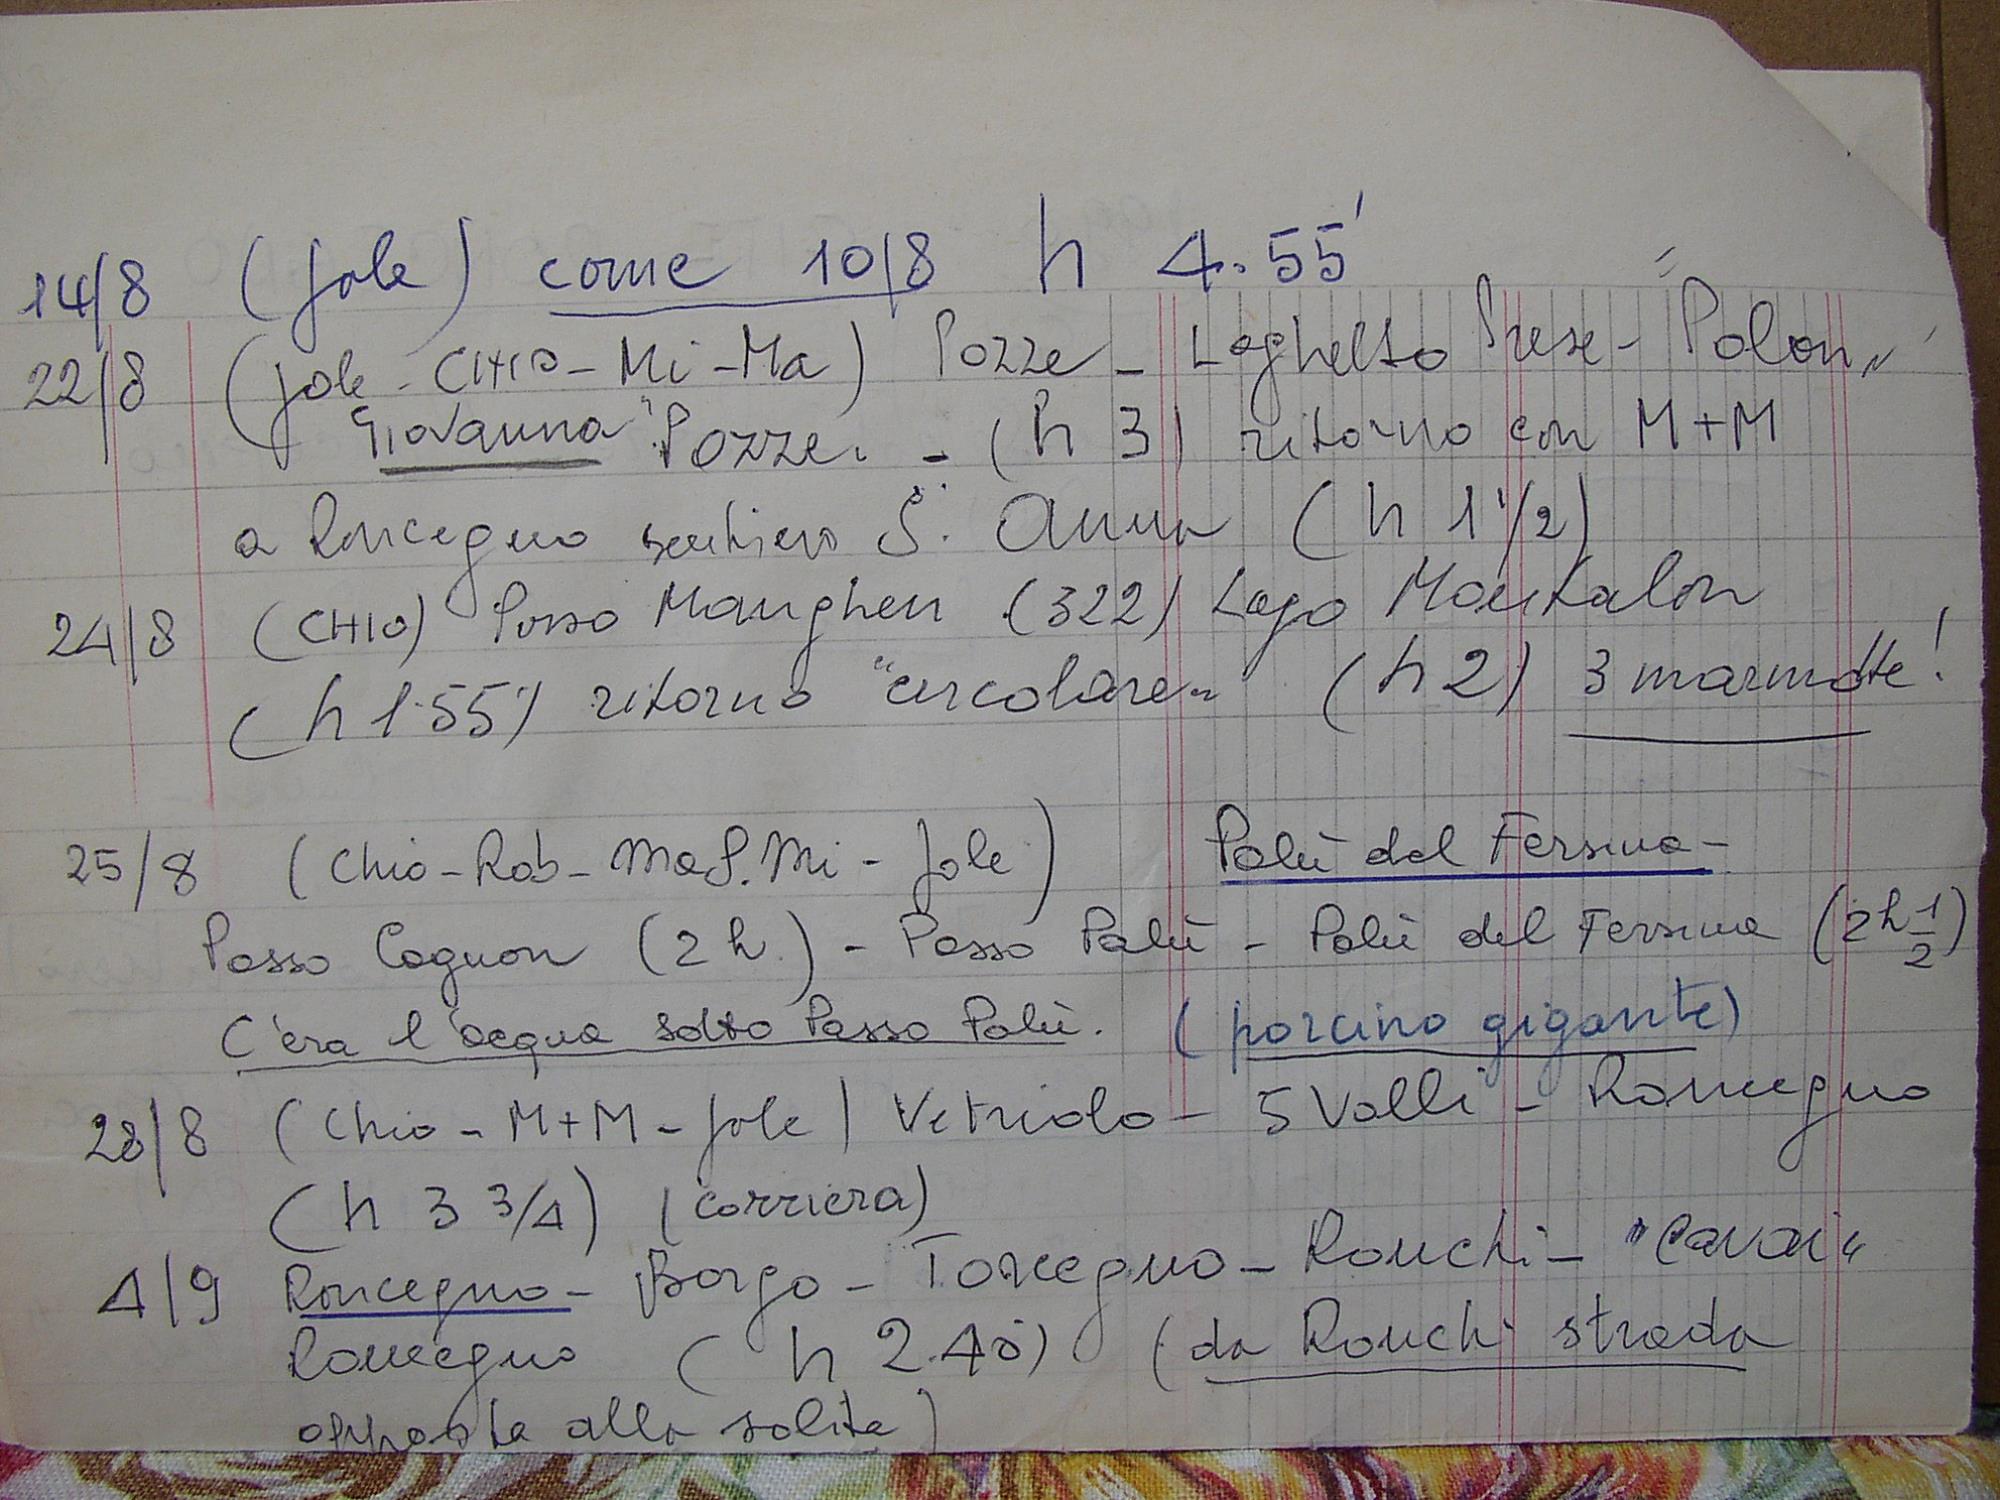 14/8 (Jole) come 10/8 h 4.55'
22/8 (Jole - CHIO - Mi - Ma) Pozze - Laghetto Prese - "Polon"
Giovanna "Pozze. - (h 3) ritorno con M+M
a Roncegno sentiero S. Anna (h 1 1/2)
24/8 (CHIO) Passo Manghen (322) Lago Montalon
(h 1.55') ritorno "circolare" (h 2) 3 marmotte!
25/8 (Chio - Rob - Ma S. Mi - Jole) Palù del Fersina -
Passo Cagnon (2 h.) - Passo Palù - Palù del Fersina (2 h 1/2)
C'era l'acqua sotto Passo Palù. (porcino gigante)
28/8 (Chio - M+M - Jole) Vetriolo - 5 Valli - Roncegno
(h 3 3/4) (corriera)
4/9 Roncegno - Borgo - Torcegno - Ronchi - "Cavai"
Roncegno (h 2.40) (da Ronchi strada
opposta alla solita)